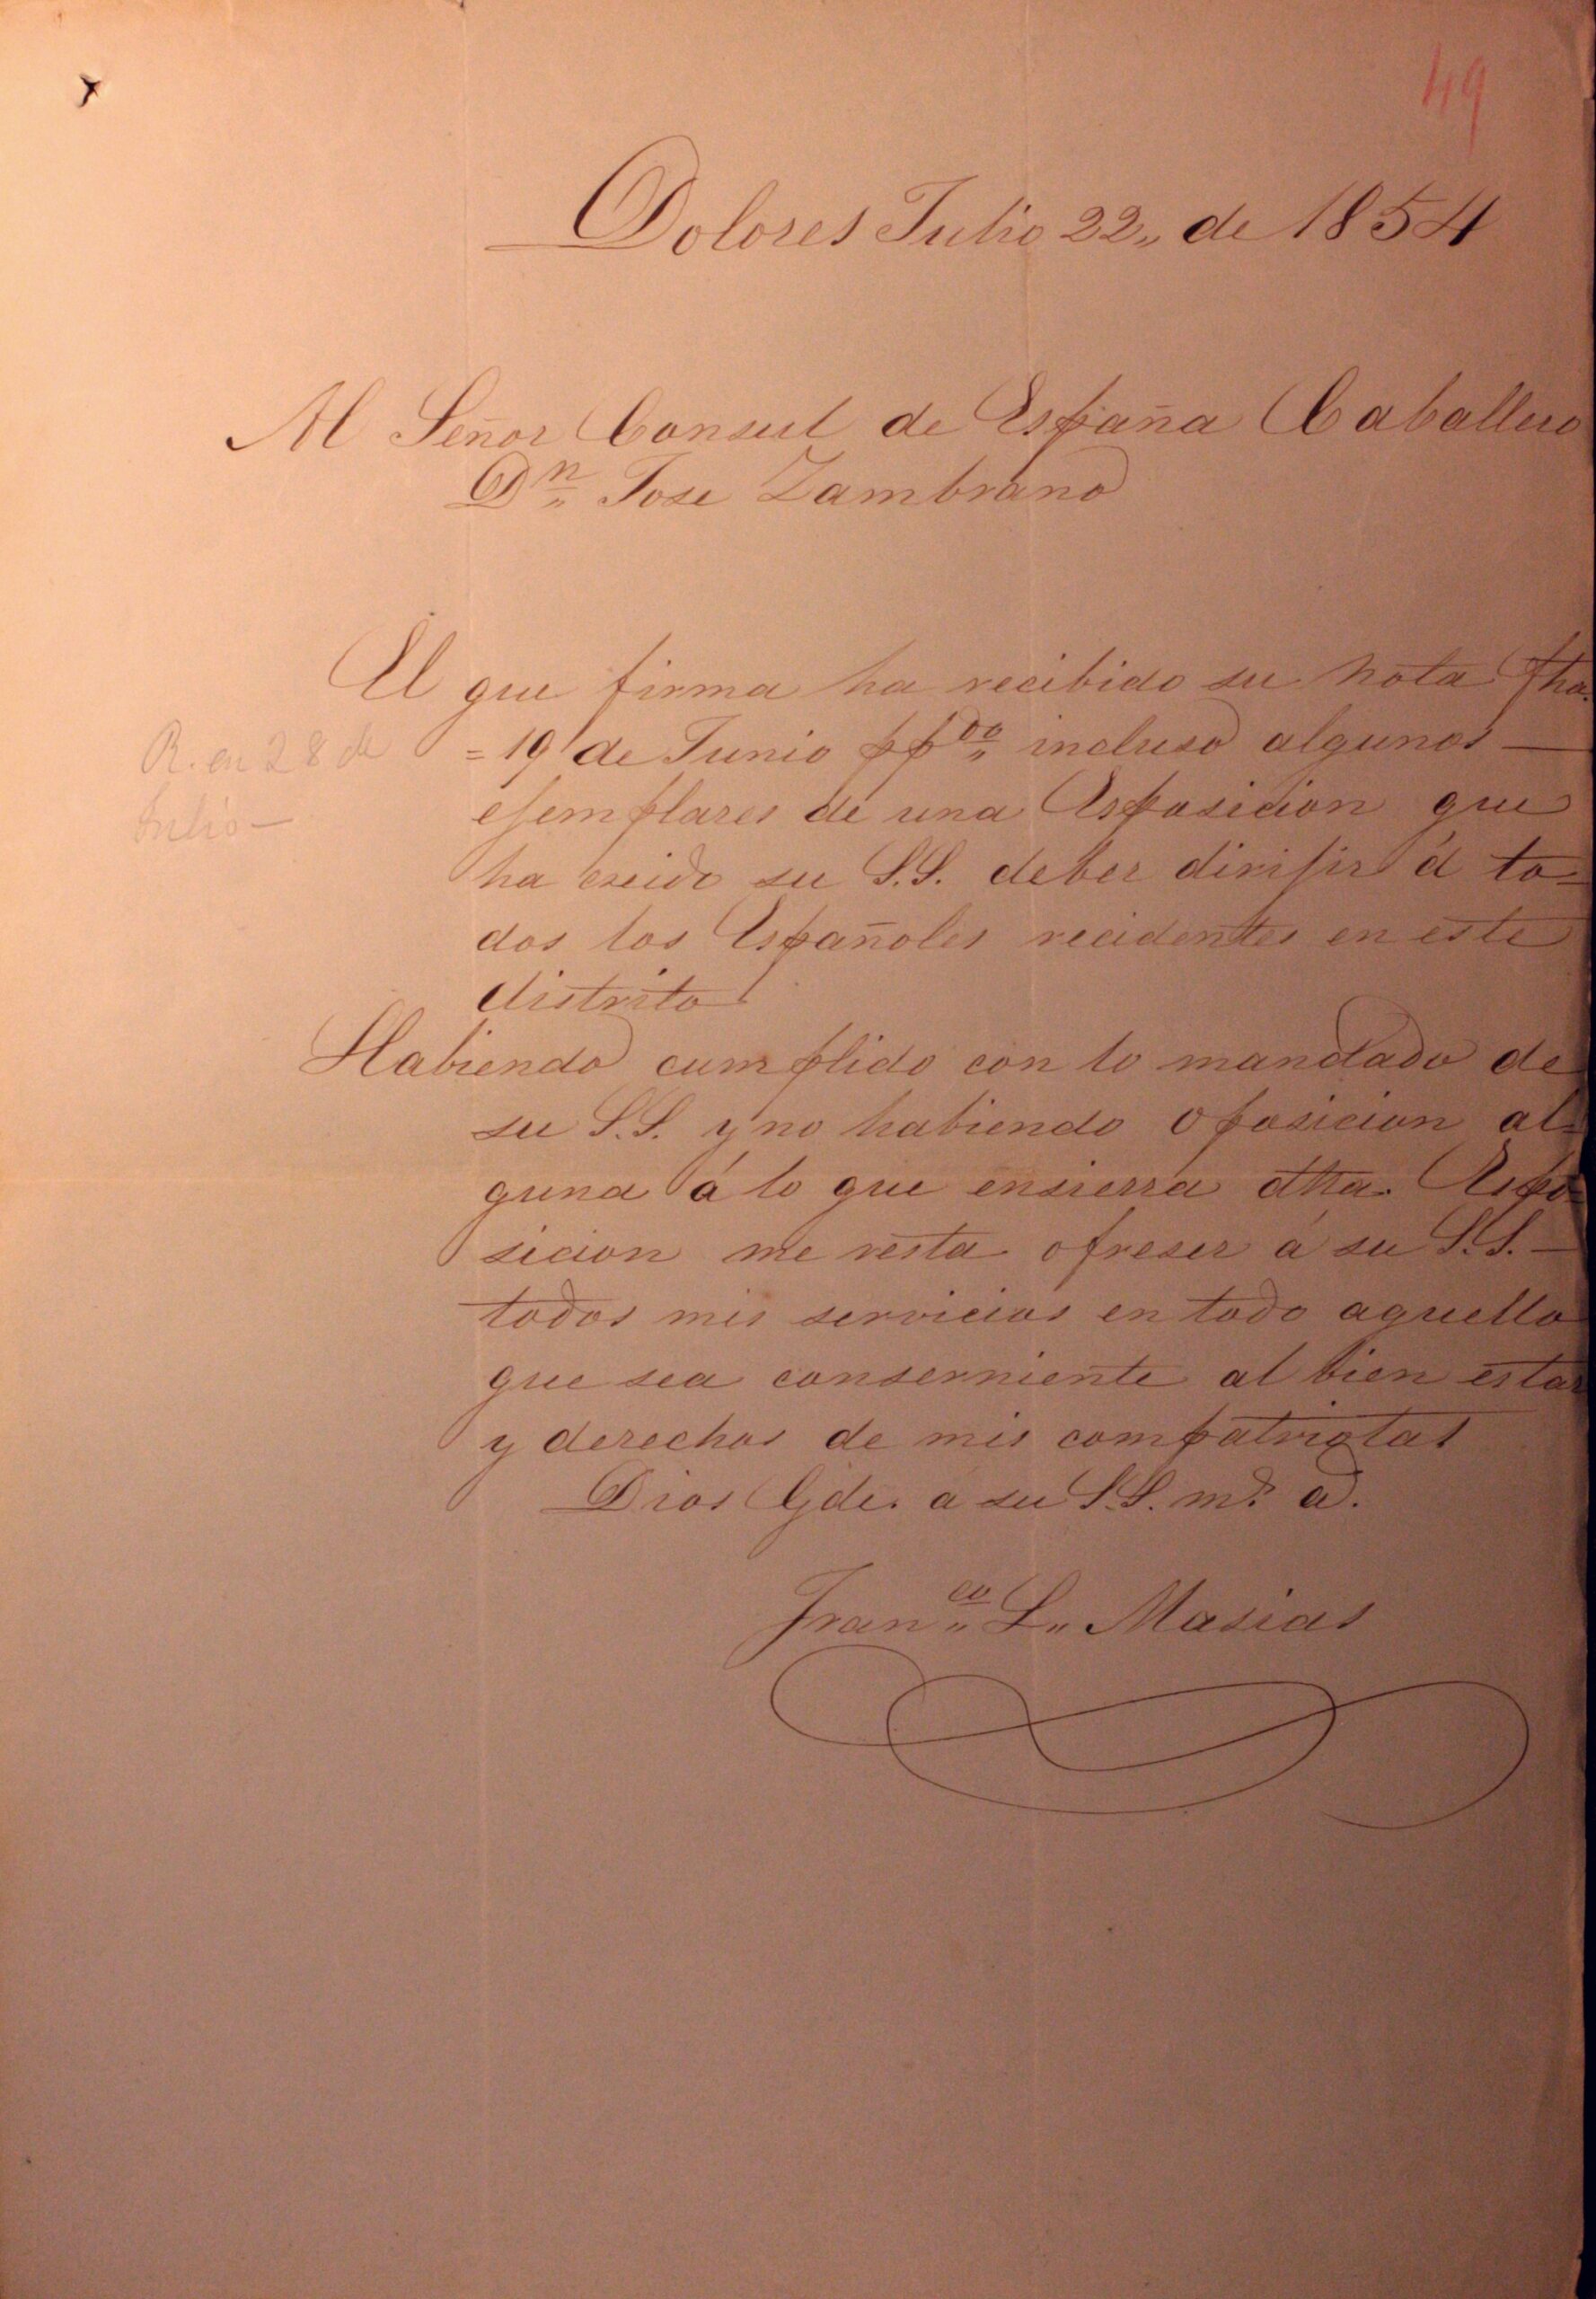 49
Dolores Julio 22,, de 1854
Al Señor Consul de España Caballero
Dn,, Jose Zambrano
El que firma ha recibido su nota fha.
R. en 28 de
Julio —
= 19 de Junio ppdo,, incluso algunos —
ejemplares de una Esposicion que
ha creido su S.S. deber dirijir á to=
dos los Españoles recidentes en este
distrito
Habiendo cumplido con lo mandado de
su S.S. y no habiendo oposicion al=
guna á lo que ensierra dha. Espo=
sicion me resta ofreser á su S.S. —
todos mis servicios en todo aquello
que sea conserniente al bien estar
y derechos de mis compatriotas
Dios Gde. a su S.S. ms. as.
Franco,, L,, Masias